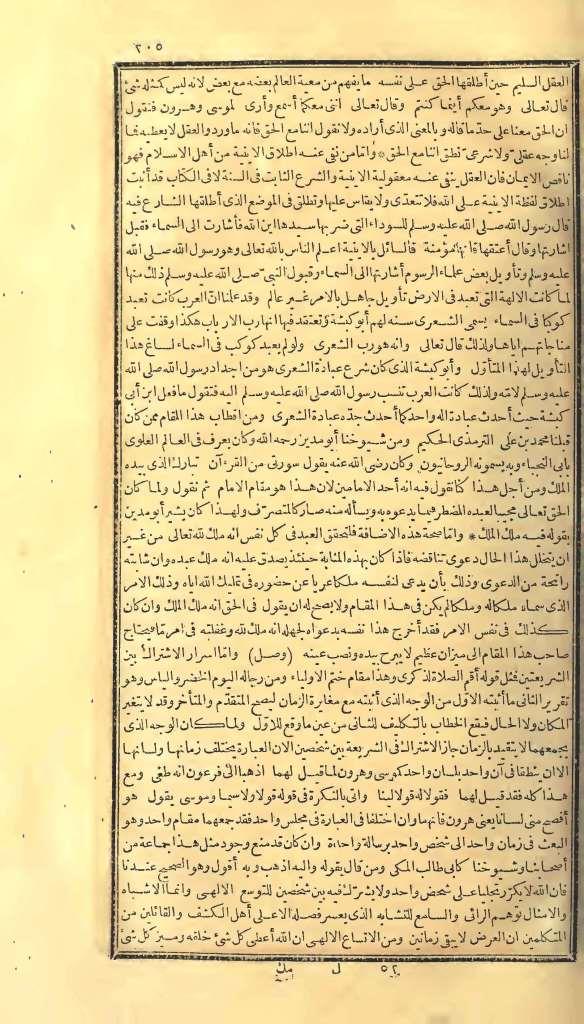 ٢٠٥
العقل السليم حين أطلقها الحق على نفسه ما يفهم من معية العالم بعضه مع بعض لانه ليس كمثله شئ
قال تعالى وهو معكم أينما كنتم وقال تعالى اننى معكما أسمع وأرى لموسى وهرون فنقول
ان الحق معنا على حد ما قاله وبالمعنى الذى أراده ولا نقول اننا مع الحق فانه ما ورد والعقل لا يعطيه فما
لنا وجه عقلى ولا شرعى نطق اننا مع الحق * وأما من نفى عنه اطلاق الاينية من أهل الاسلام فهو
ناقص الايمان فان العقل ينفى عنه معقولية الاينية والشرع الثابت فى السنة لا فى الكتاب قد أثبت
اطلاق لفظة الاينية على الله فلا تتعدى ولا يقاس عليها وتطلق فى الموضع الذى أطلقها الشارع فيه
قال رسول الله صلى الله عليه وسلم للسوداء التى ضربها سيدها اين الله فأشارت الى السماء فقبل
اشارتها وقال أعتقها فانها مؤمنة فالسائل بالاينية اعلم الناس بالله تعالى وهو رسول الله صلى الله
عليه وسلم وتأويل بعض علماء الرسوم أشارتها الى السماء وقبول النبى صلى الله عليه وسلم ذلك منها
لما كانت الالهة التى تعبد فى الارض تأويل جاهل بالامر غير عالم وقد علمنا ان العرب كانت تعبد
كوكبا فى السماء يسمى الشعرى سنه لهم أبو كبشة وتعتقد فيها انها رب الارباب هكذا وقفت على
مناجاتهم اياها ولذلك قال تعالى وانه هو رب الشعرى ولو لم يعبد كوكب فى السماء لساغ هذا
التأويل لهذا المتأول وأبو كبشة الذى كان شرع عبادة الشعرى هو من اجداد رسول الله صلى الله
عليه وسلم لامه ولذلك كانت العرب تنسب رسول الله صلى الله عليه وسلم اليه فتقول ما فعل ابن أبى
كبشة حيث أحدث عبادة اله واحد كما أحدث جده عبادة الشعرى ومن اقطاب هذا المقام ممن كان
قبلنا محمد بن على الترمذى الحكيم ومن شيوخنا أبو مدين رحمه الله وكان يعرف فى العالم العلوى
بابى النجباء وبه يسمونه الروحانيون وكان رضى الله عنه يقول سورتى من القرءان تبارك الذى بيده
الملك ومن أجل هذا كنا نقول فيه انه أحد الامامين لان هذا هو مقام الامام ثم نقول ولما كان
الحق تعالى مجيبا لعبده المضطر فيما يدعوه به ويسأله منه صار كالمتصرف ولهذا كان يشير أبو مدين
بقوله فيه ملك الملك * واما صحة هذه الاضافة فلتحقق العبد فى كل نفس انه ملك لله تعالى من غير
ان يتخلل هذا الحال دعوى تناقضه فاذا كان بهذه المثابة حينئذ يصدق عليه انه ملك عبده وان شابته
رائحة من الدعوى وذلك بأن يدعى لنفسه ملكا عريا عن حضوره فى تمليك الله اياه وذلك الامر
الذى سماه ملكا له وملكا لم يكن فى هذا المقام ولا يصح له ان يقول فى الحق انه ملك الملك وان كان
كذلك فى نفس الامر فقد أخرج هذا نفسه بدعواه لجهله انه ملك لله وغفلته فى امر ما فيحتاج
صاحب هذا المقام الى ميزان عظيم لا يبرح بيده ونصب عينه (وصل) واما أسرار الاشتراك بين
الشريعتين فمثل قوله أقم الصلاة لذكرى وهذا مقام ختم الاولياء ومن رجاله اليوم الخضر والياس وهو
تقرير الثانى ما أثبته الاول من الوجه الذى أثبته مع مغايرة الزمان ليصح المتقدم والمتأخر وقد لا يتغير
المكان ولا الحال فيقع الخطاب بالتكليف للثانى من عين ما وقع للاول ولما كان الوجه الذى
يجمعهما لا يتقيد بالزمان جاز الاشتراك فى الشريعة بين شخصين الا ان العبارة يختلف زمانها ولسانها
الا ان ينطقا فى آن واحد بلسان واحد كموسى وهرون لما قيل لهما اذهبا الى فرعون انه طغى ومع
هذا كله فقد قيل لهما فقولا له قولا لينا واتى بالنكرة فى قوله قولا ولا سيما وموسى يقول هو
أفصح منى لسانا يعنى هرون فانهما وان اختلفا فى العبارة فى مجلس واحد فقد جمعهما مقام واحد وهو
البعث فى زمان واحد الى شخص واحد برسالة واحدة وان كان قد منع وجود مثل هذا جماعة من
أصحابنا وشيوخنا كابى طالب المكى ومن قال بقوله واليه اذهب وبه أقول وهو الصحيح عندنا
فان الله لا يكرر تجليا على شخص واحد ولا يشرك فيه بين شخصين للتوسع الالهى وانما الاشباه
والامثال توهم الرائى والسامع للتشابه الذى يعسر فصله الا على أهل الكشف والقائلين من
المتكلمين ان العرض لا يبقى زمانين ومن الاتساع الالهى ان الله أعطى كل شئ خلقه وميز كل شئ
٥٢ ل مك